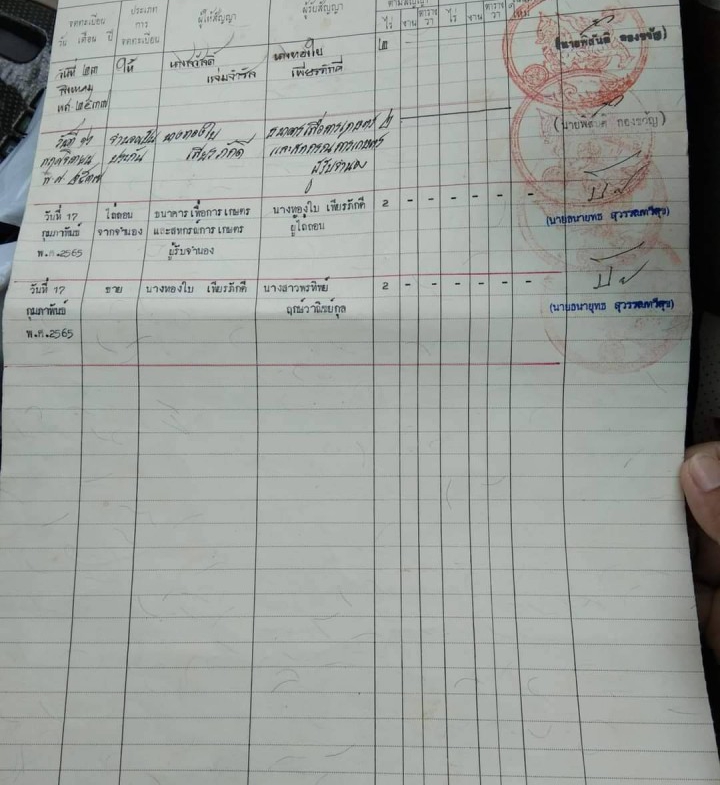 จดทะเบียน ประเภท ผู้ให้สัญญา ผู้รับสัญญา ตามสัญญา
วัน เดือน ปี การ ไร่ งาน ตาราง ไร่ งาน ตาราง ใหม่
จดทะเบียน วา วา
วันที่ ๒๓ ให้ นางทองใบ ๒ (นายพิสันติ กองขวัญ)
สิงหาคม แจ่มจำรัส เพียรภักดี
พ.ศ. ๒๕๓๗
วันที่ จำนองเป็น นางทองใบ ธนาคารเพื่อการเกษตร ๒ (นายพิสันติ กองขวัญ)
พฤศจิกายน ประกัน เพียรภักดี และสหกรณ์การเกษตร
พ.ศ. ๒๕๓๗ ผู้รับจำนอง
วันที่ 17 ไถ่ถอน ธนาคารเพื่อการเกษตร นางทองใบ เพียรภักดี 2 - - - - -
กุมภาพันธ์ จากจำนอง และสหกรณ์การเกษตร ผู้ไถ่ถอน (นายธนายุทธ สุวรรณทวีสุข)
พ.ศ.2565 ผู้รับจำนอง
วันที่ 17 ขาย นางทองใบ เพียรภักดี นางสาวพรทิพย์ 2 - - - - -
กุมภาพันธ์ ฤกษ์วาณิชย์กุล (นายธนายุทธ สุวรรณทวีสุข)
พ.ศ.2565